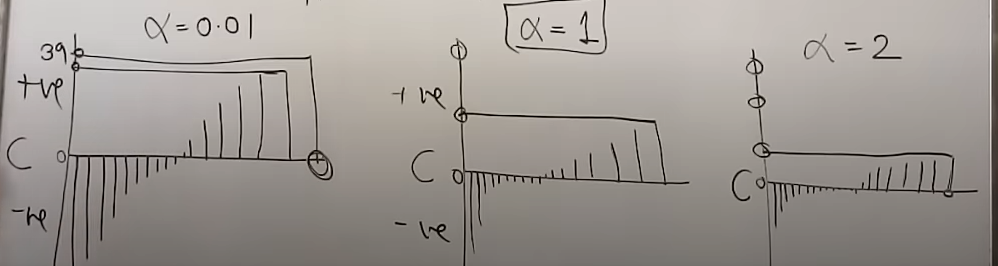 α = 0.01
39
+ve
C 0
-ve
α = 1
+ve
C 0
-ve
α = 2
C 0